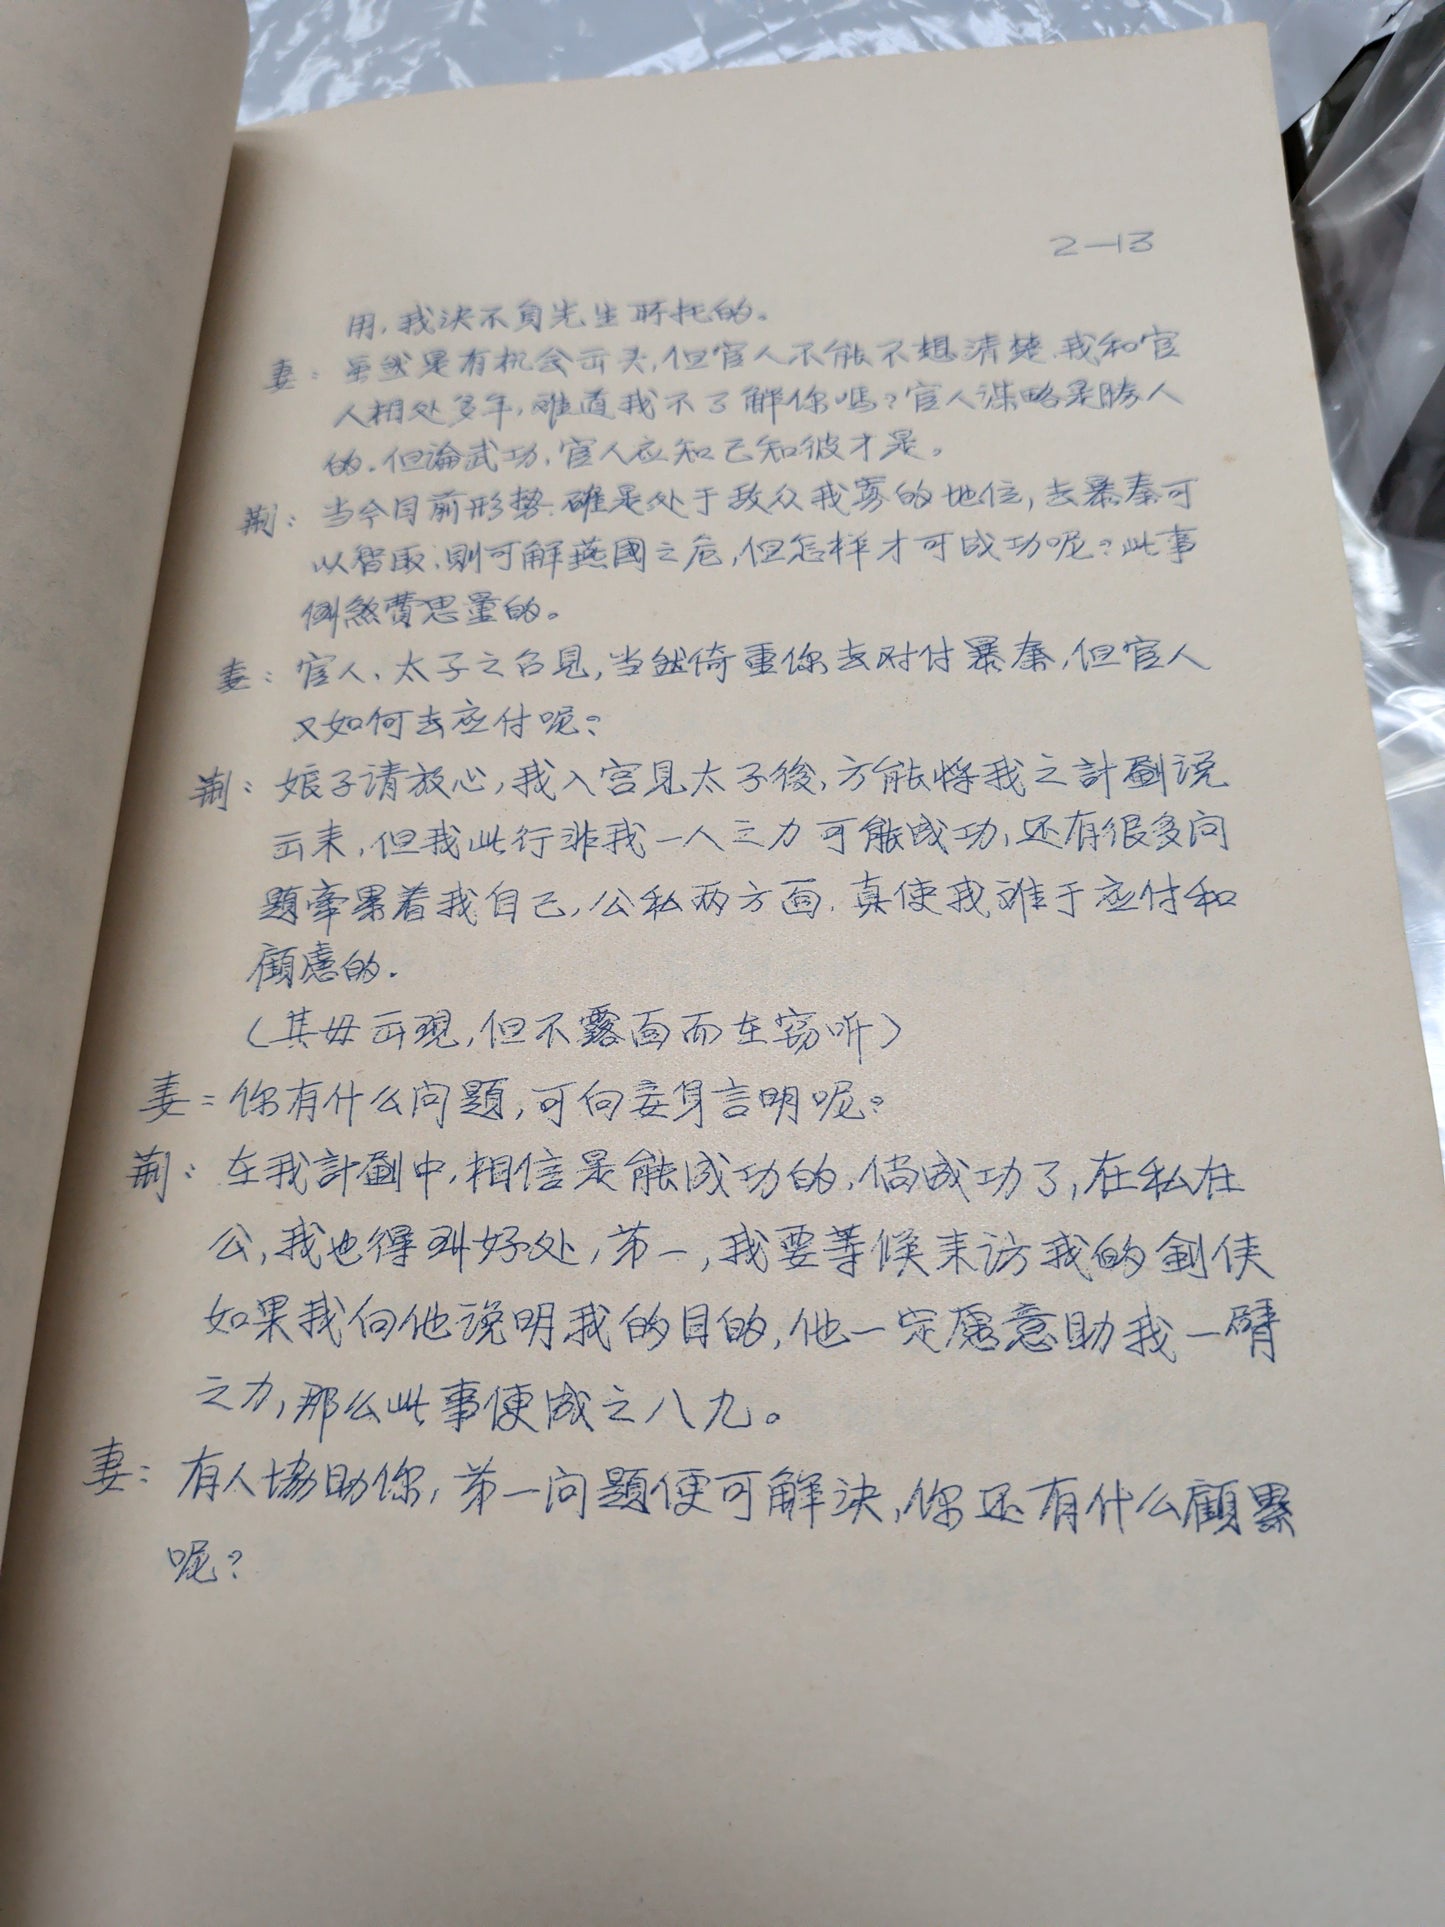 2—13
用,我决不负先生所托的。
妻:虽然是有机会出头,但官人不能不想清楚,我和官
人相处多年,难道我不了解你嗎?官人谋略是勝人
的.但論武功,官人应知己知彼才是。
荆:当今目前形势.確是处于敌众我寡的地位,去暴秦可
以智取,則可解燕國之危,但怎样才可成功呢?此事
倒煞費思量的。
妻:官人、太子之召見,当然倚重你去对付暴秦,但官人
又如何去应付呢?
荆:娘子请放心,我入宫見太子後,方能将我之計劃说
出来,但我此行非我一人之力可能成功,还有很多问
題牽累着我自己,公私两方面.真使我难于应付和
顧慮的.
(其母出現,但不露面而在窃听)
妻:你有什么问題,可向妾身言明呢?
荆:在我計劃中,相信是能成功的,倘成功了,在私在
公,我也得到好处,第一,我要等候来访我的劍侠
如果我向他说明我的目的,他一定愿意助我一臂
之力,那么此事便成之八九。
妻:有人協助你,第一问題便可解决,你还有什么顧累
呢?